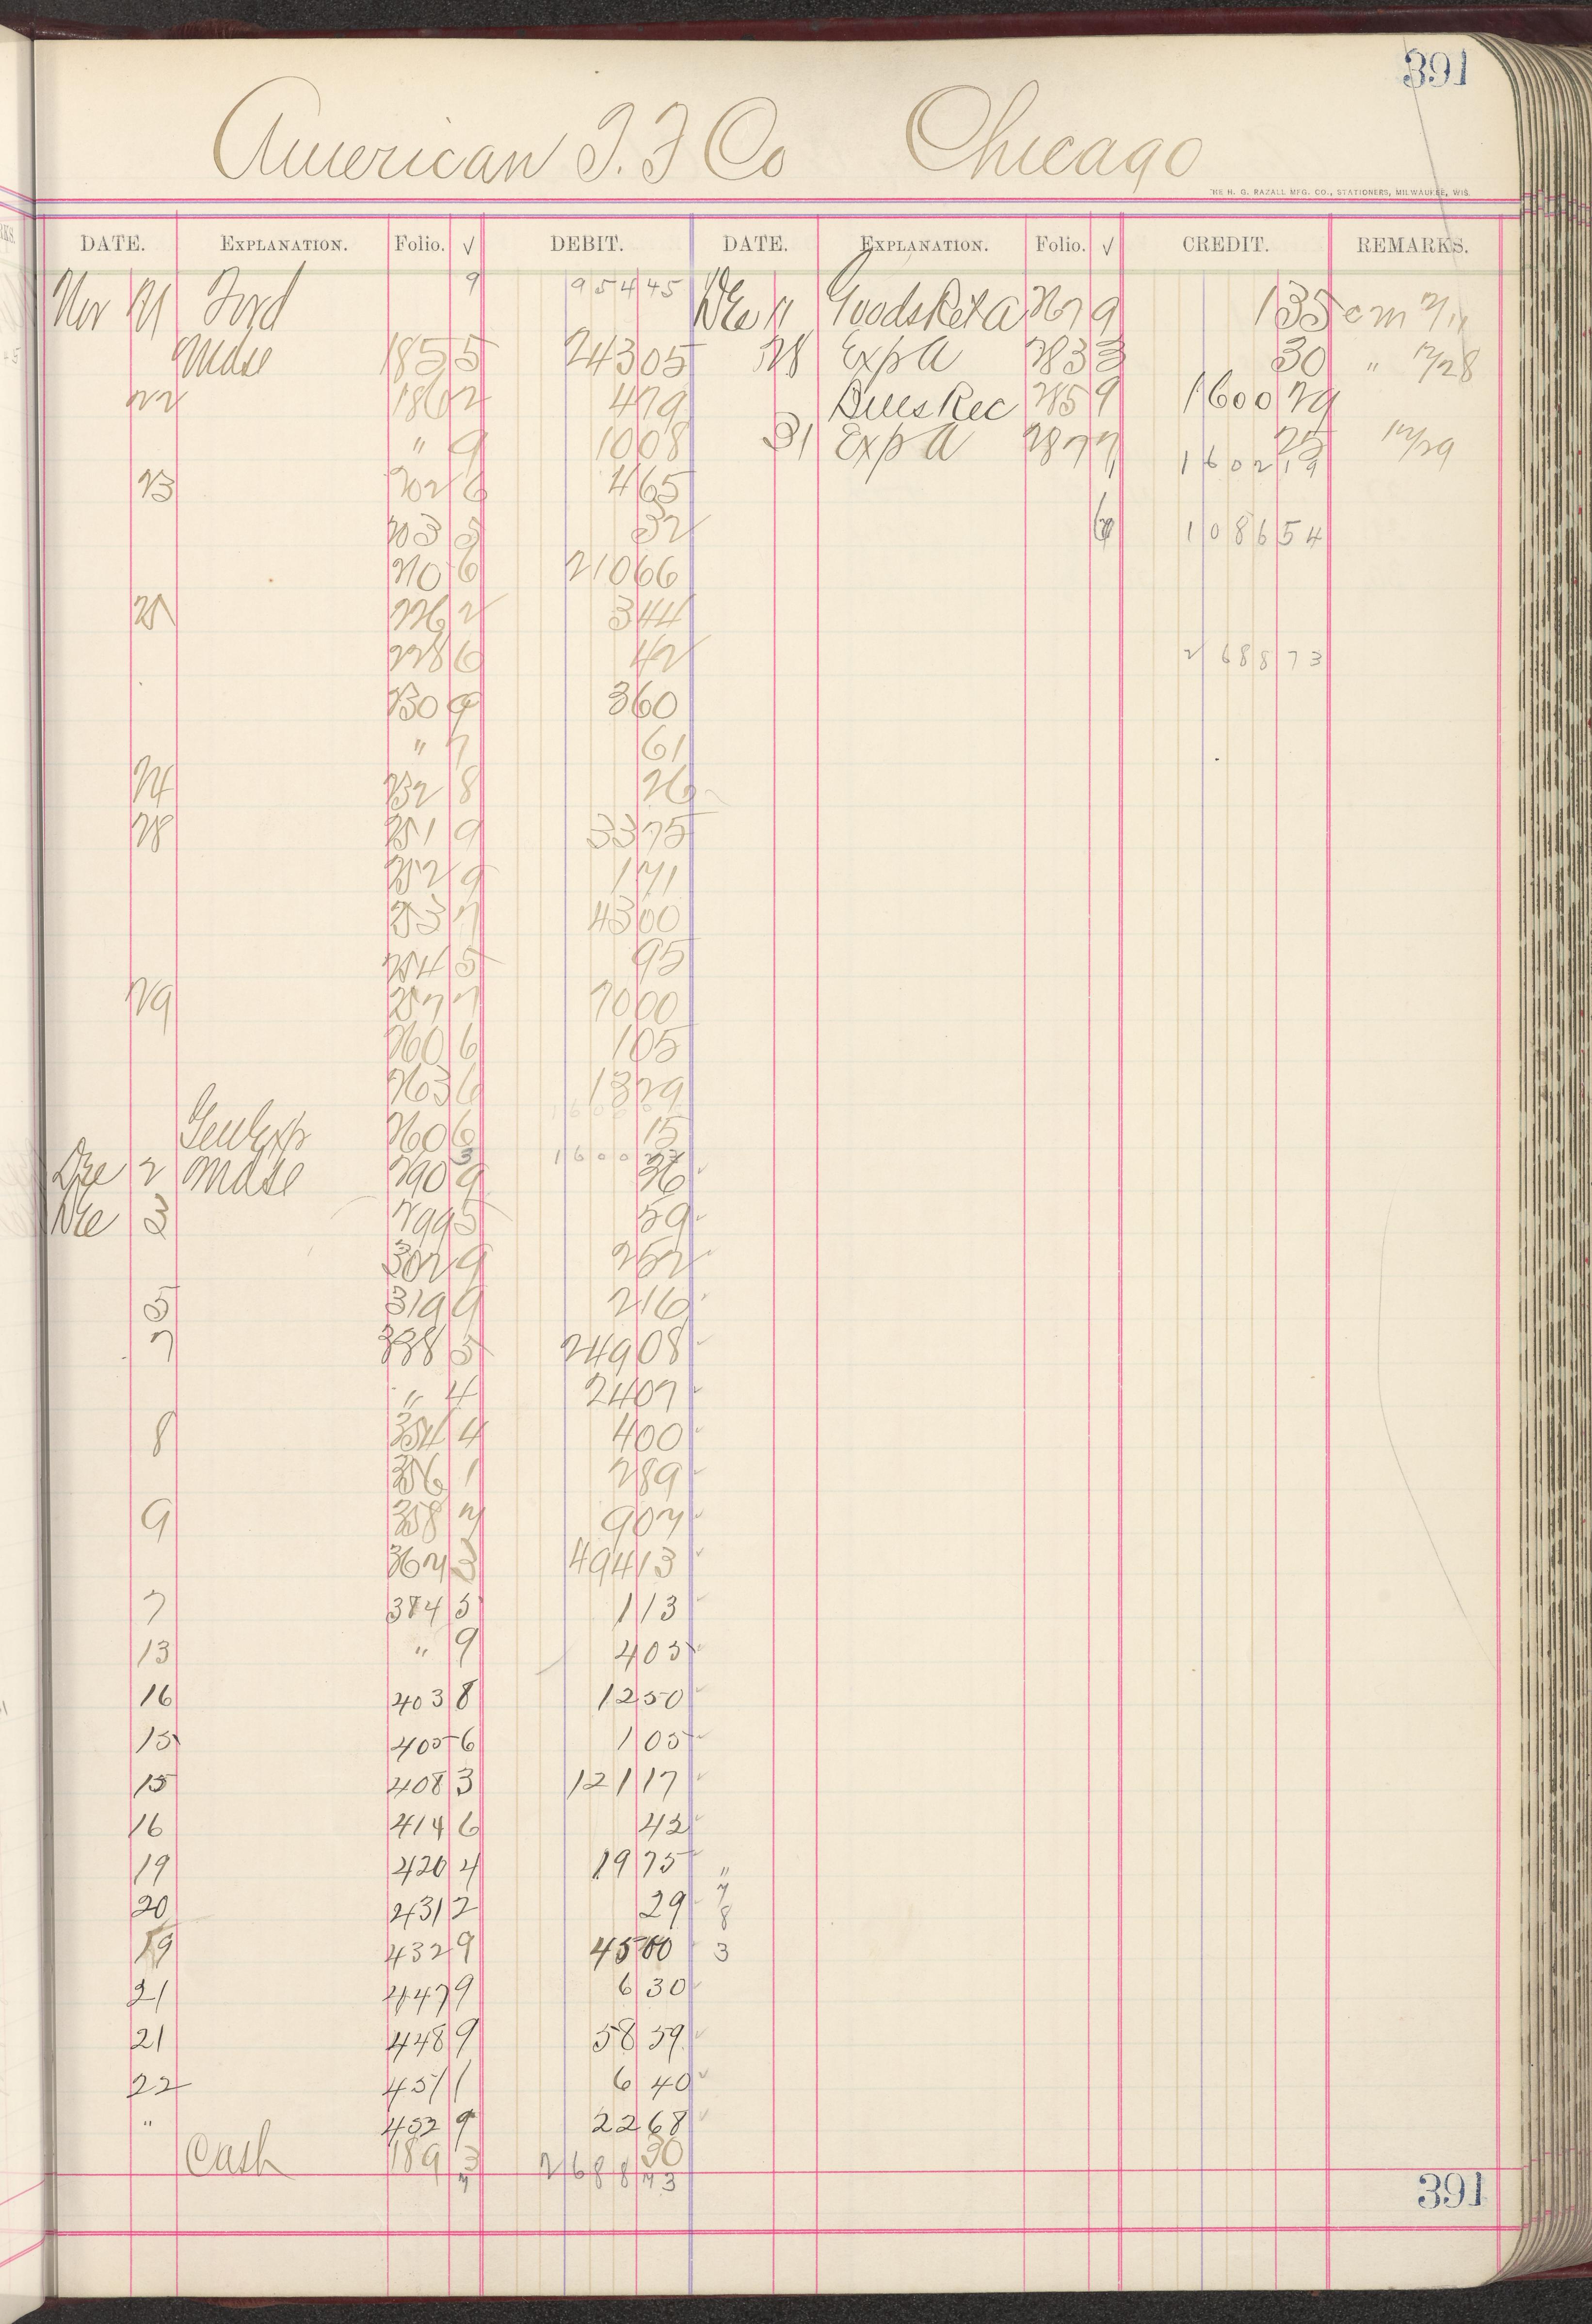 391
American I. F Co Chicago
THE H. G. RAZALL MFG. CO., STATIONERS, MILWAUKEE, WIS.
DATE. EXPLANATION. Folio. √ DEBIT. DATE. EXPLANATION. Folio. √ CREDIT. REMARKS.
Nov 21 Ford 9 954 45 Dec 11 Goods Ret A 267 9 1 35 cm 12/11
Mdse 185 5 243 05 28 Exp A 283 3 30 " 12/28
22 186 2 4 79 Bills Rec 285 9 1600 29
" 9 10 08 31 Exp A 287 7 25 12/29
1602 19
23 202 6 4 65
203 5 32 6 1086 54
210 6 210 66
25 226 2 3 44
228 6 42 2688 73
230 9 3 60
" 7 61
24 232 8 26
28 251 9 33 75
252 9 1 71
253 7 43 00
254 5 95
29 257 7 70 00
260 6 1 05
263 6 13 29
Gen Exp 260 6 15
1600
Dec 2 Mdse 290 9 36
Dec 3 299 5 59
302 9 2 52
5 319 9 2 16
7 338 5 249 08
" 4 24 07
8 354 4 4 00
356 1 2 89
9 358 7 9 07
367 3 494 13
7 374 5 1 13
13 " 9 4 05
16 403 8 12 50
15 405 6 1 05
15 408 3 121 17
16 414 6 42
19 420 4 19 75 "
20 431 2 29 7
8
19 432 9 45 00 3
21 447 9 6 30
21 448 9 58 59
22 451 1 6 40
" 452 9 22 68
Cash 189 3 30
7 2688 73
391